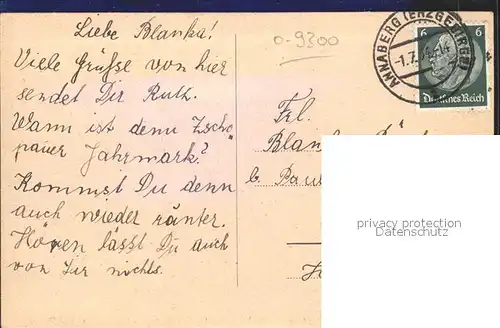 Liebe Blanka!
Viele Grüsse von hier
sendet Dir Ruth.
Wann ist denn Zscho-
pauer Jahrmark?
Kommst Du denn
auch wieder ränter.
Hören lässt Du auch
von Dir nichts.
0-9300
ANNABERG (ERZGEBIRGE)
-1.7.
6 6
Deutsches Reich
Frl.
b. Paul
privacy protection
Datenschutz